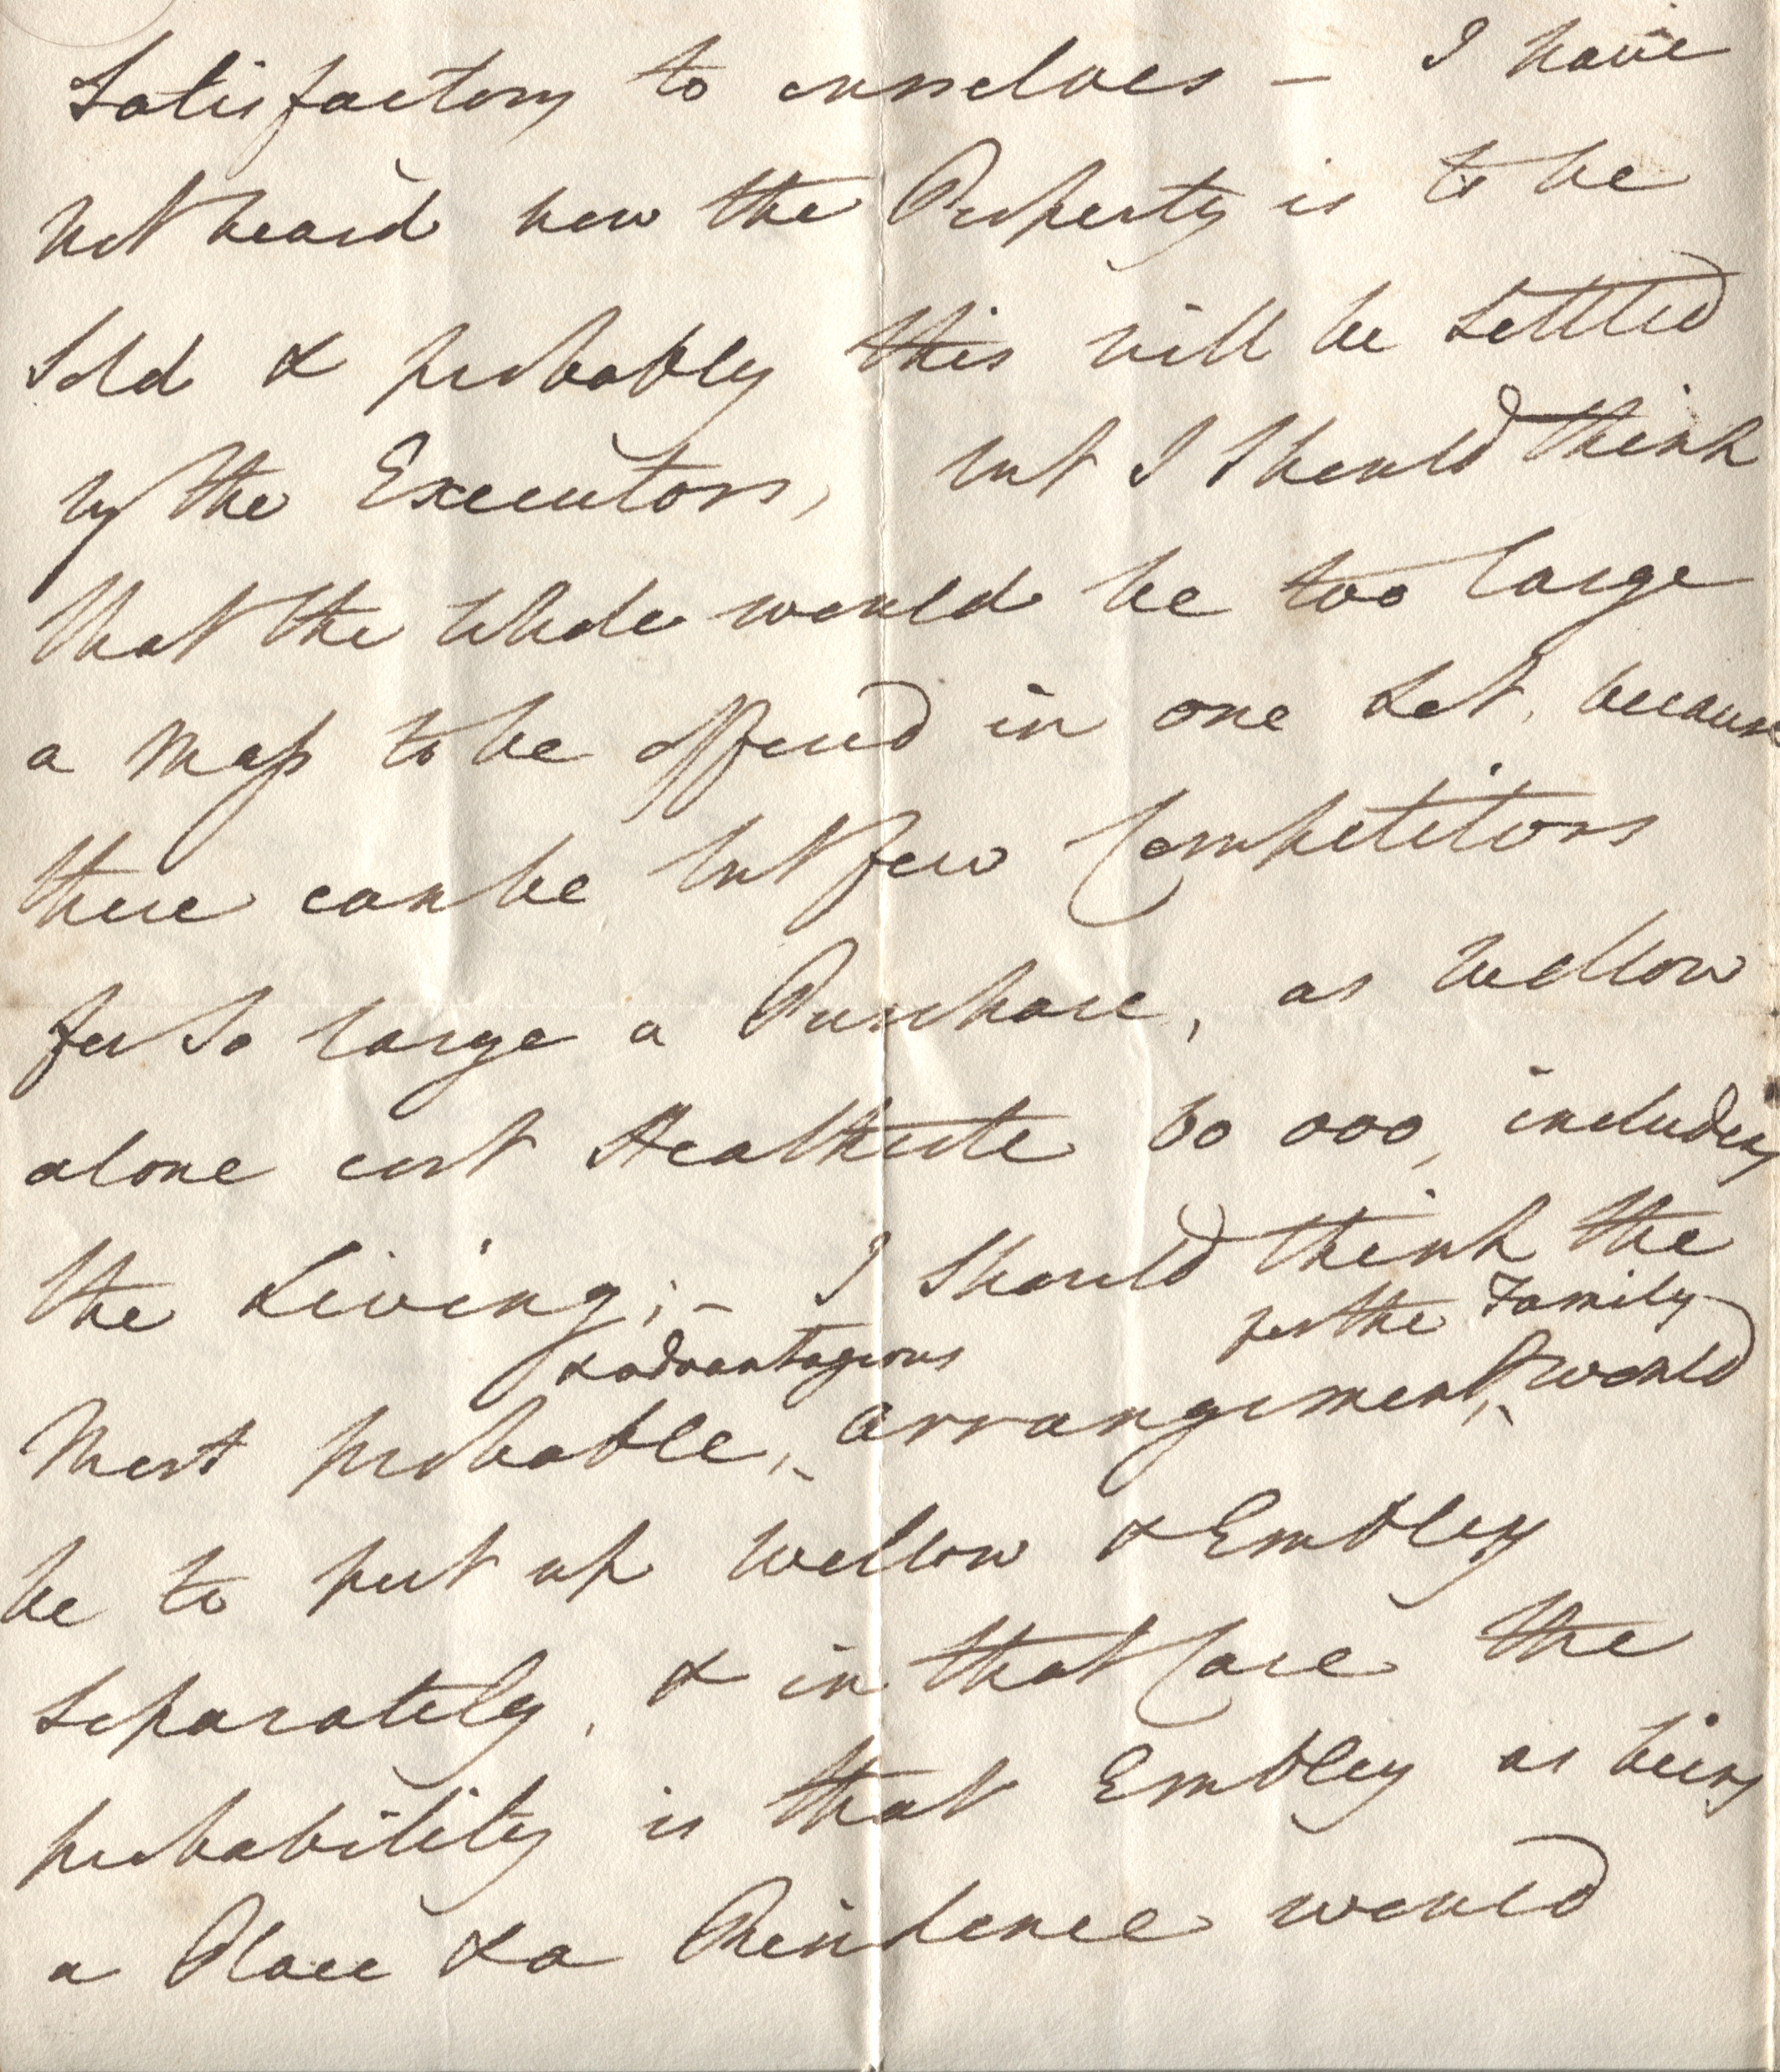 Satisfactory to ourselves – I have
not heard how the Property is to be
Sold & probably this will be Settled
by the Executors, but I Should think
that the Whole would be too large
a Mass to be offered in one Lot, because
there can be but few Competitors
for So large a Purchase, as Wellow
alone cost Heathcote 60 000, including
the Living; – I Should think the
& advantageous for the Family
Most probable, arrangement, would
be to put up Wellow & Embley
Separately, & in that Case the
probability is that Embley as being
a Place & a Residence would